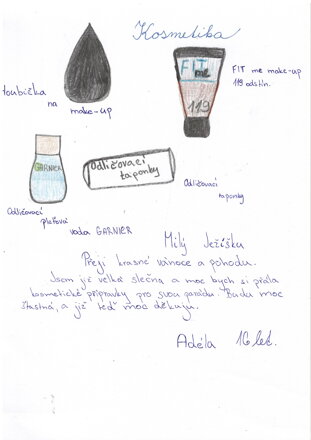 Kosmetika
houbička
na make-up
FIT
me
119
FIT me make-up
119 odstín.
GARNIER
Odličovací
taponky
Odličovací
pleťová
voda GARNIER
Odličovací
taponky
Milý Ježíšku
Přeji krasné vánoce a pohodu.
Jsem již velká slečna a moc bych si přála
kosmetické přípravky pro svou parádu. Budu moc
šťastná, a již teď moc děkuju.
Adéla 10 let.